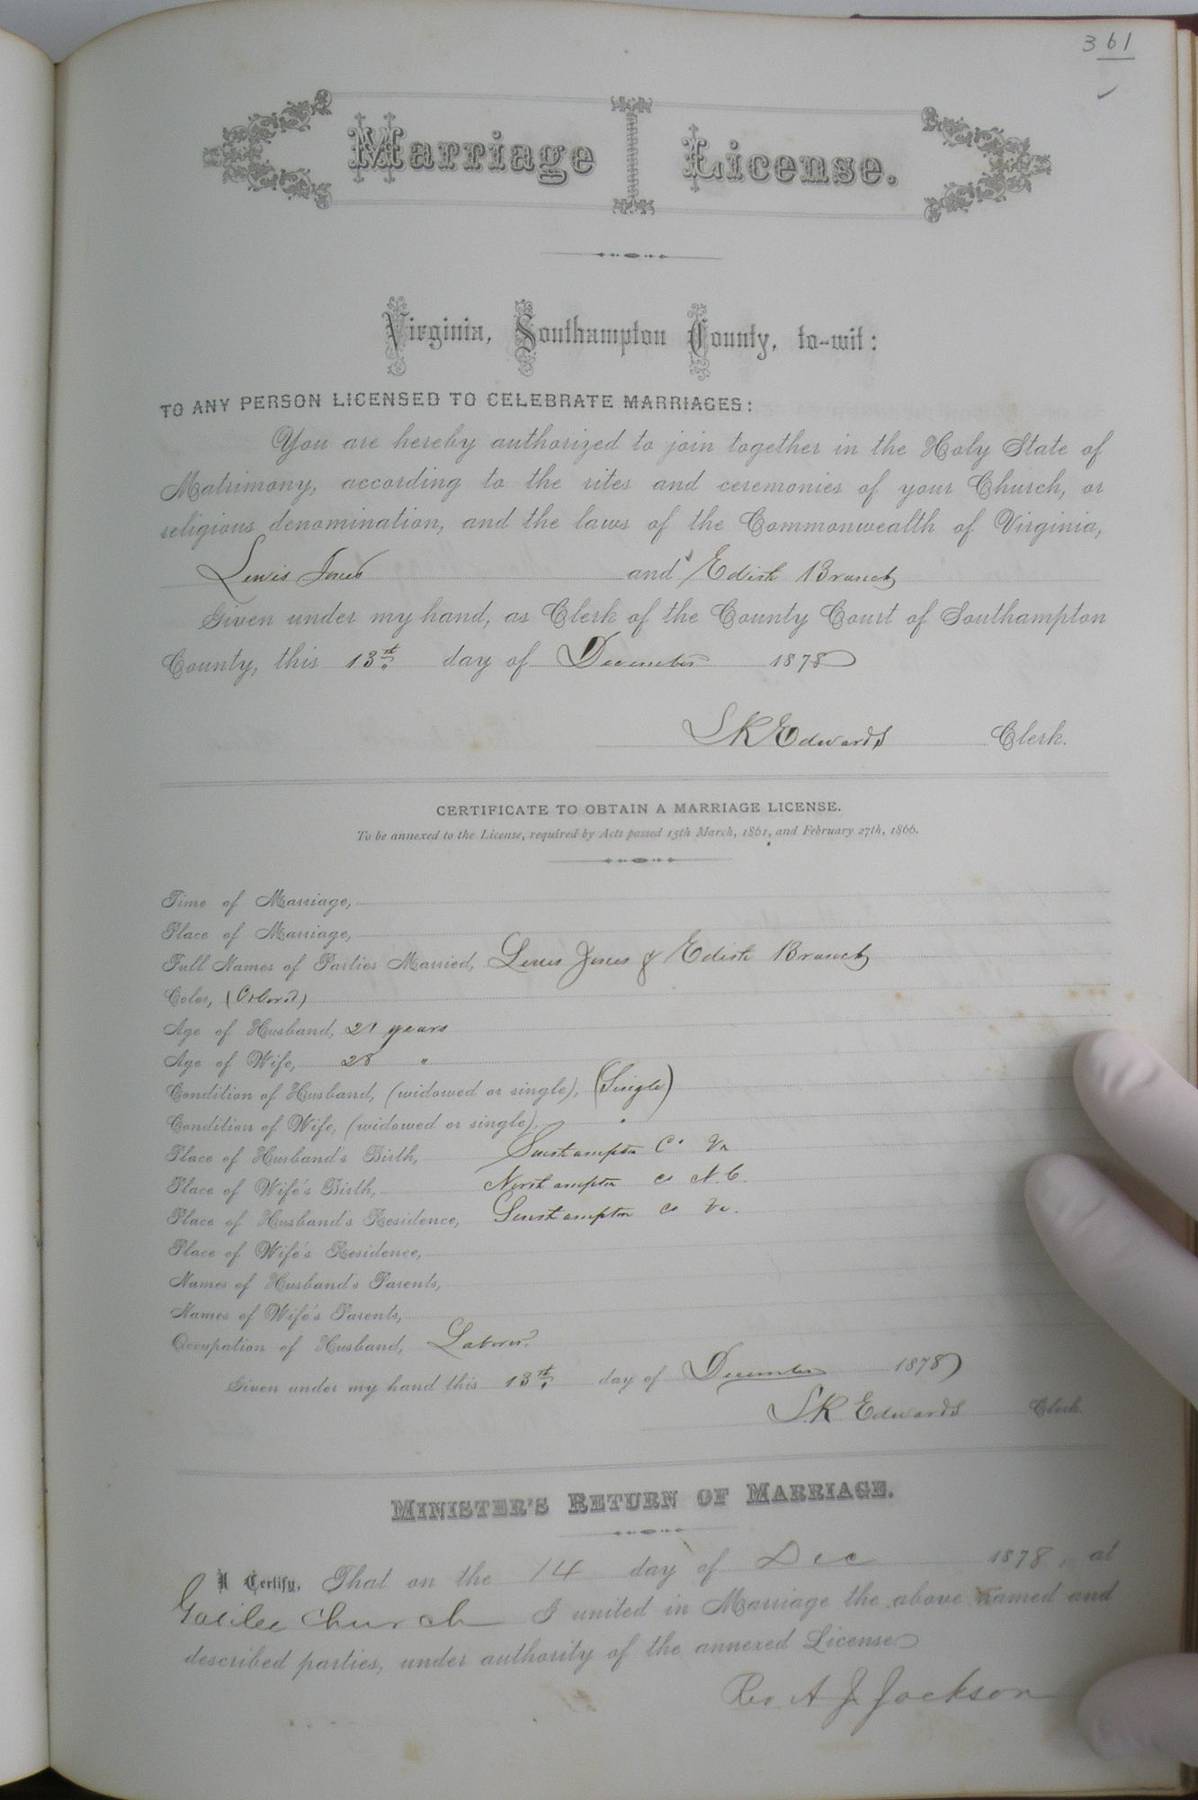 361
Marriage License.
Virginia, Southampton County, to-wit:
TO ANY PERSON LICENSED TO CELEBRATE MARRIAGES:
You are hereby authorized to join together in the Holy State of
Matrimony, according to the rites and ceremonies of your Church, or
religious denomination, and the laws of the Commonwealth of Virginia,
Lewis Jones and Edith Branch
Given under my hand, as Clerk of the County Court of Southampton
County, this 13th day of December 1878
L R Edwards Clerk.
CERTIFICATE TO OBTAIN A MARRIAGE LICENSE.
To be annexed to the License, required by Acts passed 15th March, 1861, and February 27th, 1866.
Time of Marriage,
Place of Marriage,
Full Names of Parties Married, Lewis Jones & Edith Branch
Color, (Colored)
Age of Husband, 21 years
Age of Wife, 28 "
Condition of Husband, (widowed or single), (Single)
Condition of Wife, (widowed or single), "
Place of Husband's Birth, Southampton Co Va
Place of Wife's Birth, Northampton Co N.C.
Place of Husband's Residence, Southampton Co Va.
Place of Wife's Residence,
Names of Husband's Parents,
Names of Wife's Parents,
Occupation of Husband, Laborer
Given under my hand this 13th day of December 1878
L.R. Edwards Clerk
MINISTER'S RETURN OF MARRIAGE.
I Certify, That on the 14 day of Dec 1878, at
Galilee Church I united in Marriage the above named and
described parties, under authority of the annexed License
Rev A J Jackson